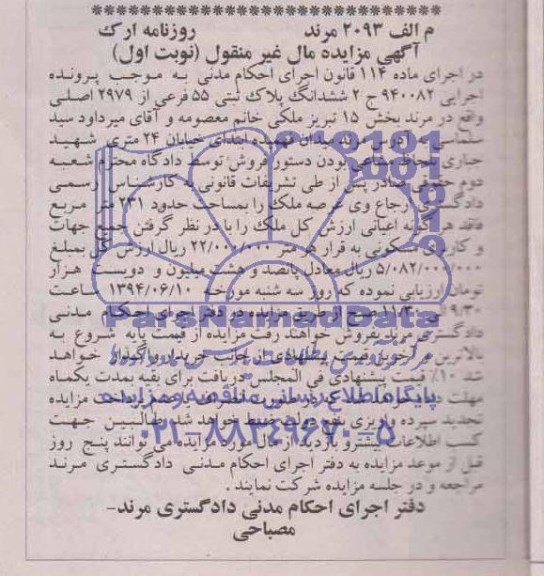 م الف ۲۰۹۳ مرند روزنامه ارک
آگهی مزایده مال غیر منقول (نوبت اول)
در اجرای ماده ۱۱۴ قانون اجرای احکام مدنی به موجب پرونده
اجرایی ۹۴۰۰۸۲ ج ۲ ششدانگ پلاک ثبتی ۵۵ فرعی از ۲۹۷۹ اصلی
واقع در مرند بخش ۱۵ تبریز ملکی خانم معصومه و آقای میرداود سید
سلماسی به آدرس مرند میدان فهمیده ابتدای خیابان ۲۴ متری شهید
جباری بلحاظ مشاعی بودن دستور فروش توسط دادگاه محترم شعبه
دوم حقوقی صادر پس از طی تشریفات قانونی به کارشناس رسمی
دادگستری ارجاع وی عرصه ملک را بمساحت حدود ۲۳۱ متر مربع
فاقد هر گونه اعیانی ارزش کل ملک را با در نظر گرفتن جمیع جهات
و کاربری مسکونی به قرار هر متر ۲۲/۰۰۰/۰۰۰ ریال ارزش کل بمبلغ
۵/۰۸۲/۰۰۰/۰۰۰ ریال معادل پانصد و هشت میلیون و دویست هزار
تومان ارزیابی نموده که روز سه شنبه مورخه ۱۳۹۴/۰۶/۱۰ ساعت
۹/۳۰ الی ۱۱/۳۰ صبح از طریق مزایده در دفتر اجرای احکام مدنی
دادگستری مرند بفروش خواهند رفت مزایده از قیمت پایه شروع به
بالاترین قیمت پیشنهادی از جانب خریدار واگذار خواهد
شد ۱۰٪ قیمت پیشنهادی فی المجلس دریافت برای بقیه بمدت یکماه
مهلت داده مزایده
تجدید سپرده واریزی بنفع دولت ضبط خواهد شد طالبین جهت
کسب اطلاعات بیشتر و بازدید از مال مورد مزایده می توانند پنج روز
قبل از موعد مزایده به دفتر اجرای احکام مدنی دادگستری مرند
مراجعه و در جلسه مزایده شرکت نمایند .
دفتر اجرای احکام مدنی دادگستری مرند-
مصباحی
ParsNamadData
پایگاه اطلاع رسانی مناقصه و مزایده
۰۲۱-۸۸۳۴۹۶۷۰-۵